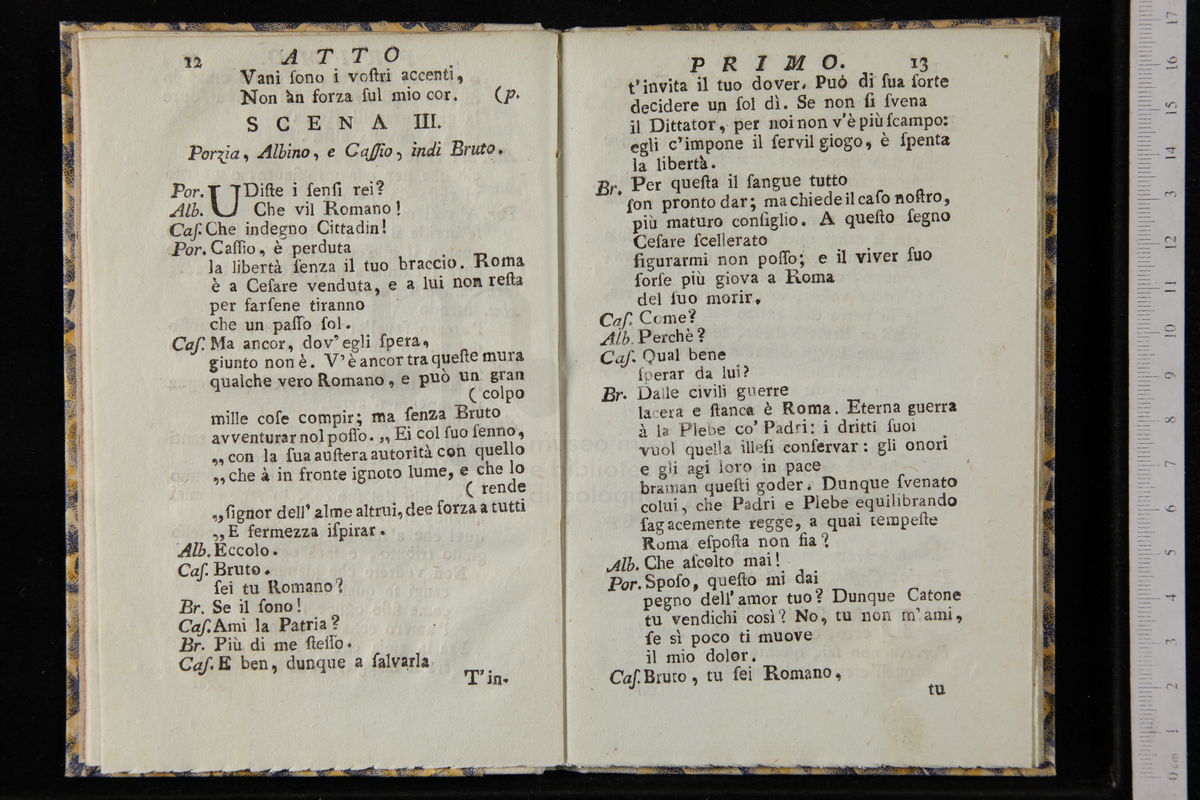 12 ATTO
Vani ſono i voſtri accenti,
Non àn forza ſul mio cor. (p.
SCENA III.
Porzia, Albino, e Caſſio, indi Bruto.
Por. UDiſte i ſenſi rei?
Alb. Che vil Romano!
Caſ. Che indegno Cittadin!
Por. Caſſio, è perduta
la libertà ſenza il tuo braccio. Roma
è a Ceſare venduta, e a lui non reſta
per farſene tiranno
che un paſſo ſol.
Caſ. Ma ancor, dov' egli ſpera,
giunto non è. V'è ancor tra queſte mura
qualche vero Romano, e può un gran
( colpo
mille coſe compir; ma ſenza Bruto
avventurar nol poſſo. „ Ei col ſuo ſenno,
„ con la ſua auſtera autorità con quello
„ che à in fronte ignoto lume, e che lo
( rende
„ ſignor dell' alme altrui, dee forza a tutti
„ E fermezza iſpirar.
Alb. Eccolo.
Caſ. Bruto.
ſei tu Romano?
Br. Se il ſono!
Caſ. Ami la Patria?
Br. Più di me ſteſſo.
Caſ. E ben, dunque a ſalvarla
T'in-
PRIMO. 13
t'invita il tuo dover. Può di ſua ſorte
decidere un ſol dì. Se non ſi ſvena
il Dittator, per noi non v'è più ſcampo:
egli c'impone il ſervil giogo, è ſpenta
la libertà.
Br. Per queſta il ſangue tutto
ſon pronto dar; ma chiede il caſo noſtro,
più maturo conſiglio. A queſto ſegno
Ceſare ſcellerato
figurarmi non poſſo; e il viver ſuo
forſe più giova a Roma
del ſuo morir.
Caſ. Come?
Alb. Perchè?
Caſ. Qual bene
ſperar da lui?
Br. Dalle civili guerre
lacera e ſtanca è Roma. Eterna guerra
à la Plebe co' Padri: i dritti ſuoi
vuol quella illeſi conſervar: gli onori
e gli agi loro in pace
braman queſti goder. Dunque ſvenato
colui, che Padri e Plebe equilibrando
ſagacemente regge, a quai tempeſte
Roma eſpoſta non fia?
Alb. Che aſcolto mai!
Por. Spoſo, queſto mi dai
pegno dell' amor tuo? Dunque Catone
tu vendichi così? No, tu non m'ami,
ſe sì poco ti muove
il mio dolor.
Caſ. Bruto, tu ſei Romano,
tu